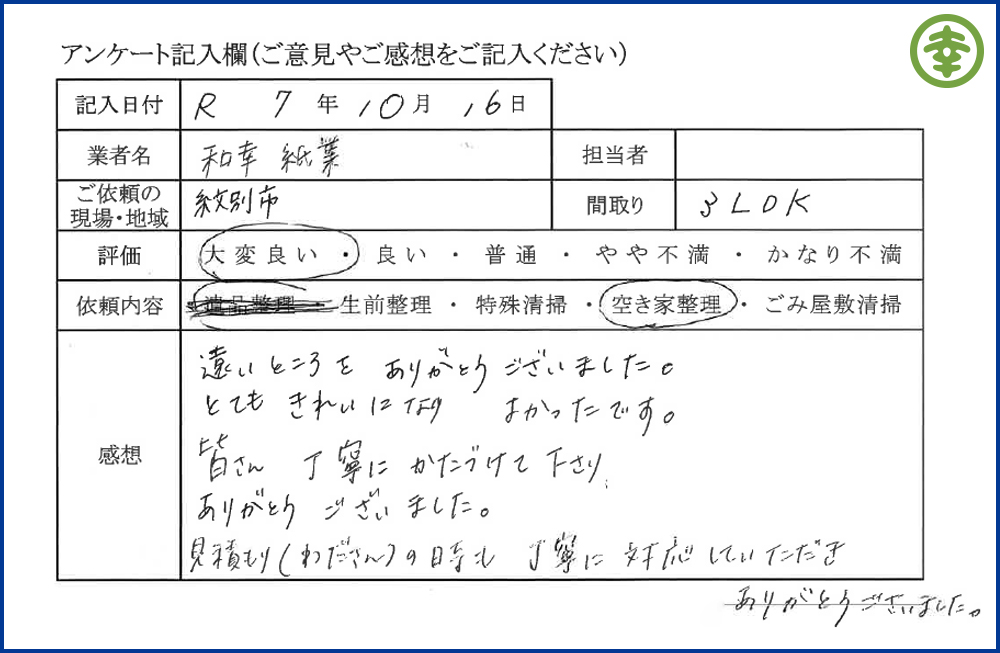 幸
アンケート記入欄(ご意見やご感想をご記入ください)
記入日付 R 7 年 10 月 16 日
業者名 和幸紙業 担当者
ご依頼の現場・地域 紋別市 間取り 3LDK
評価 大変良い ・ 良い ・ 普通 ・ やや不満 ・ かなり不満
依頼内容 遺品整理 ・ 生前整理 ・ 特殊清掃 ・ 空き家整理 ・ ごみ屋敷清掃
感想
遠いところを ありがとうございました。
とても きれいになり よかったです。
皆さん 丁寧に かたづけて 下さり、
ありがとう ございました。
見積もり(わださん)の時も 丁寧に 対応していただき
ありがとうございました。